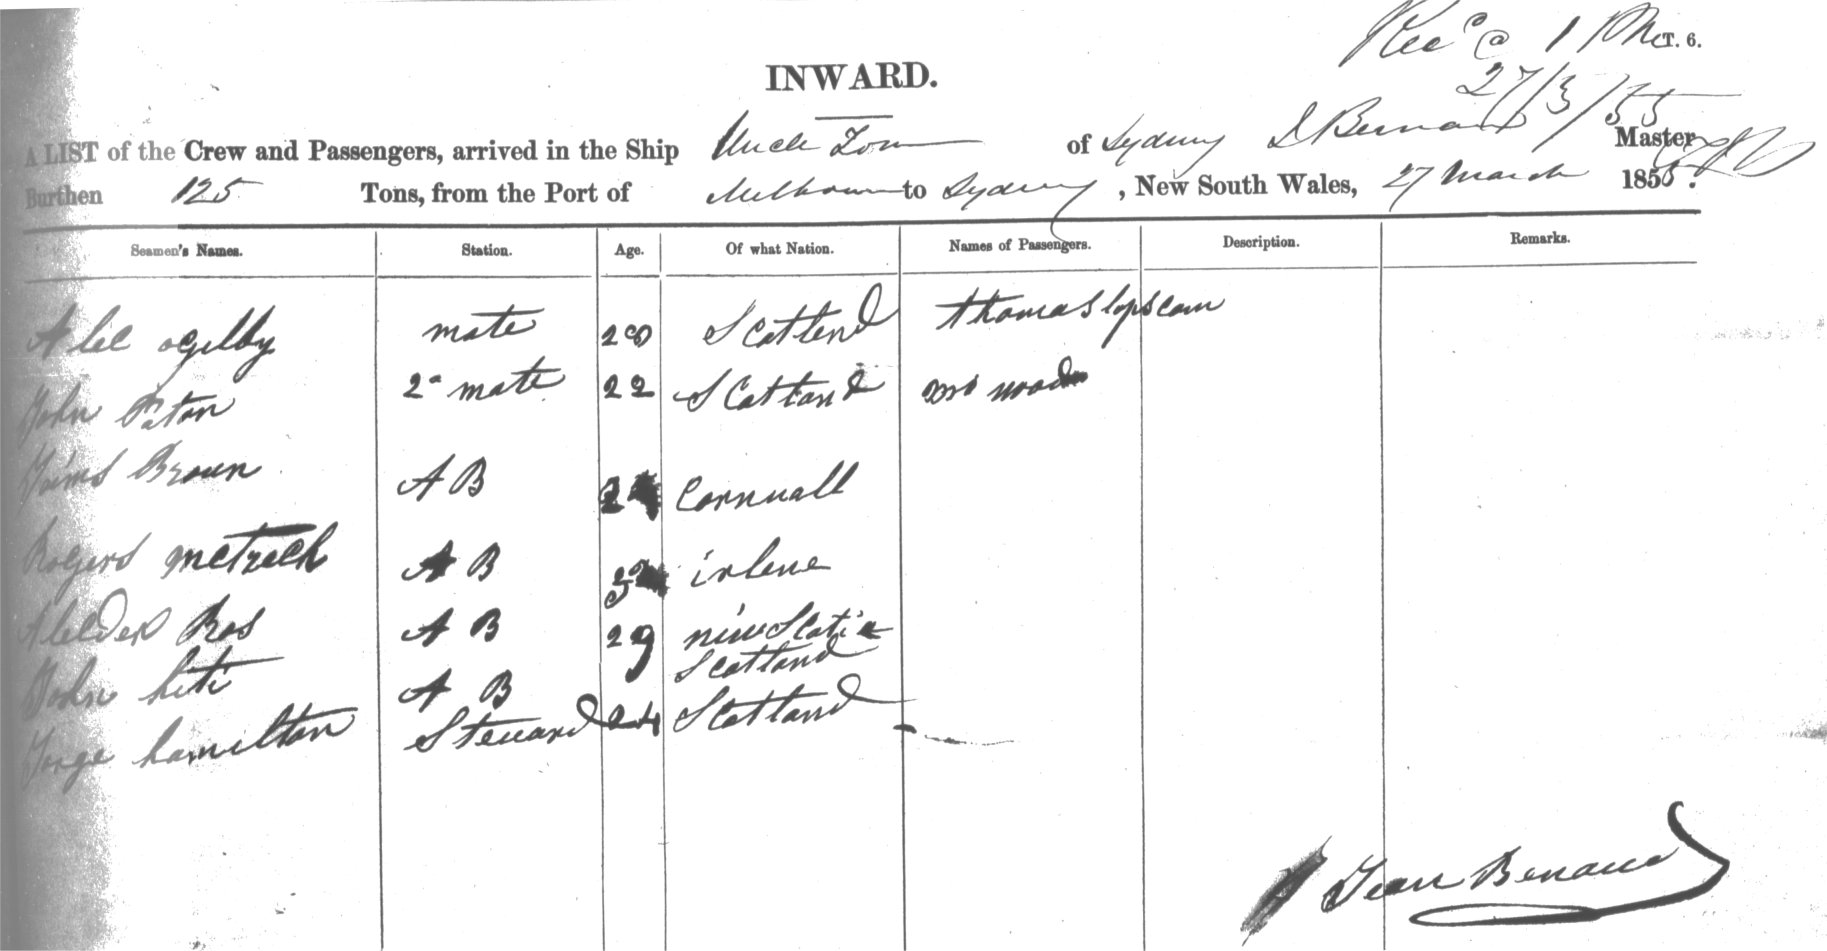 Rec'd @ 1 PM T. 6.
27/3/55
INWARD.
A LIST of the Crew and Passengers, arrived in the Ship Uncle Tom of Sydney J Bernard Master
Burthen 125 Tons, from the Port of Melbourne to Sydney, New South Wales, 27 March 1855.
Seamen's Names. Station. Age. Of what Nation. Names of Passengers. Description. Remarks.
ogelby mate 28 Scotland thomas
John Paton 2d mate 22 Scotland mrs
Broun A B Cornuall
Rogers A B irlene
Ros A B 29 niw Scotia
John A B Scotland
Jorge hamelton Steuard 24 Scotland
Jean